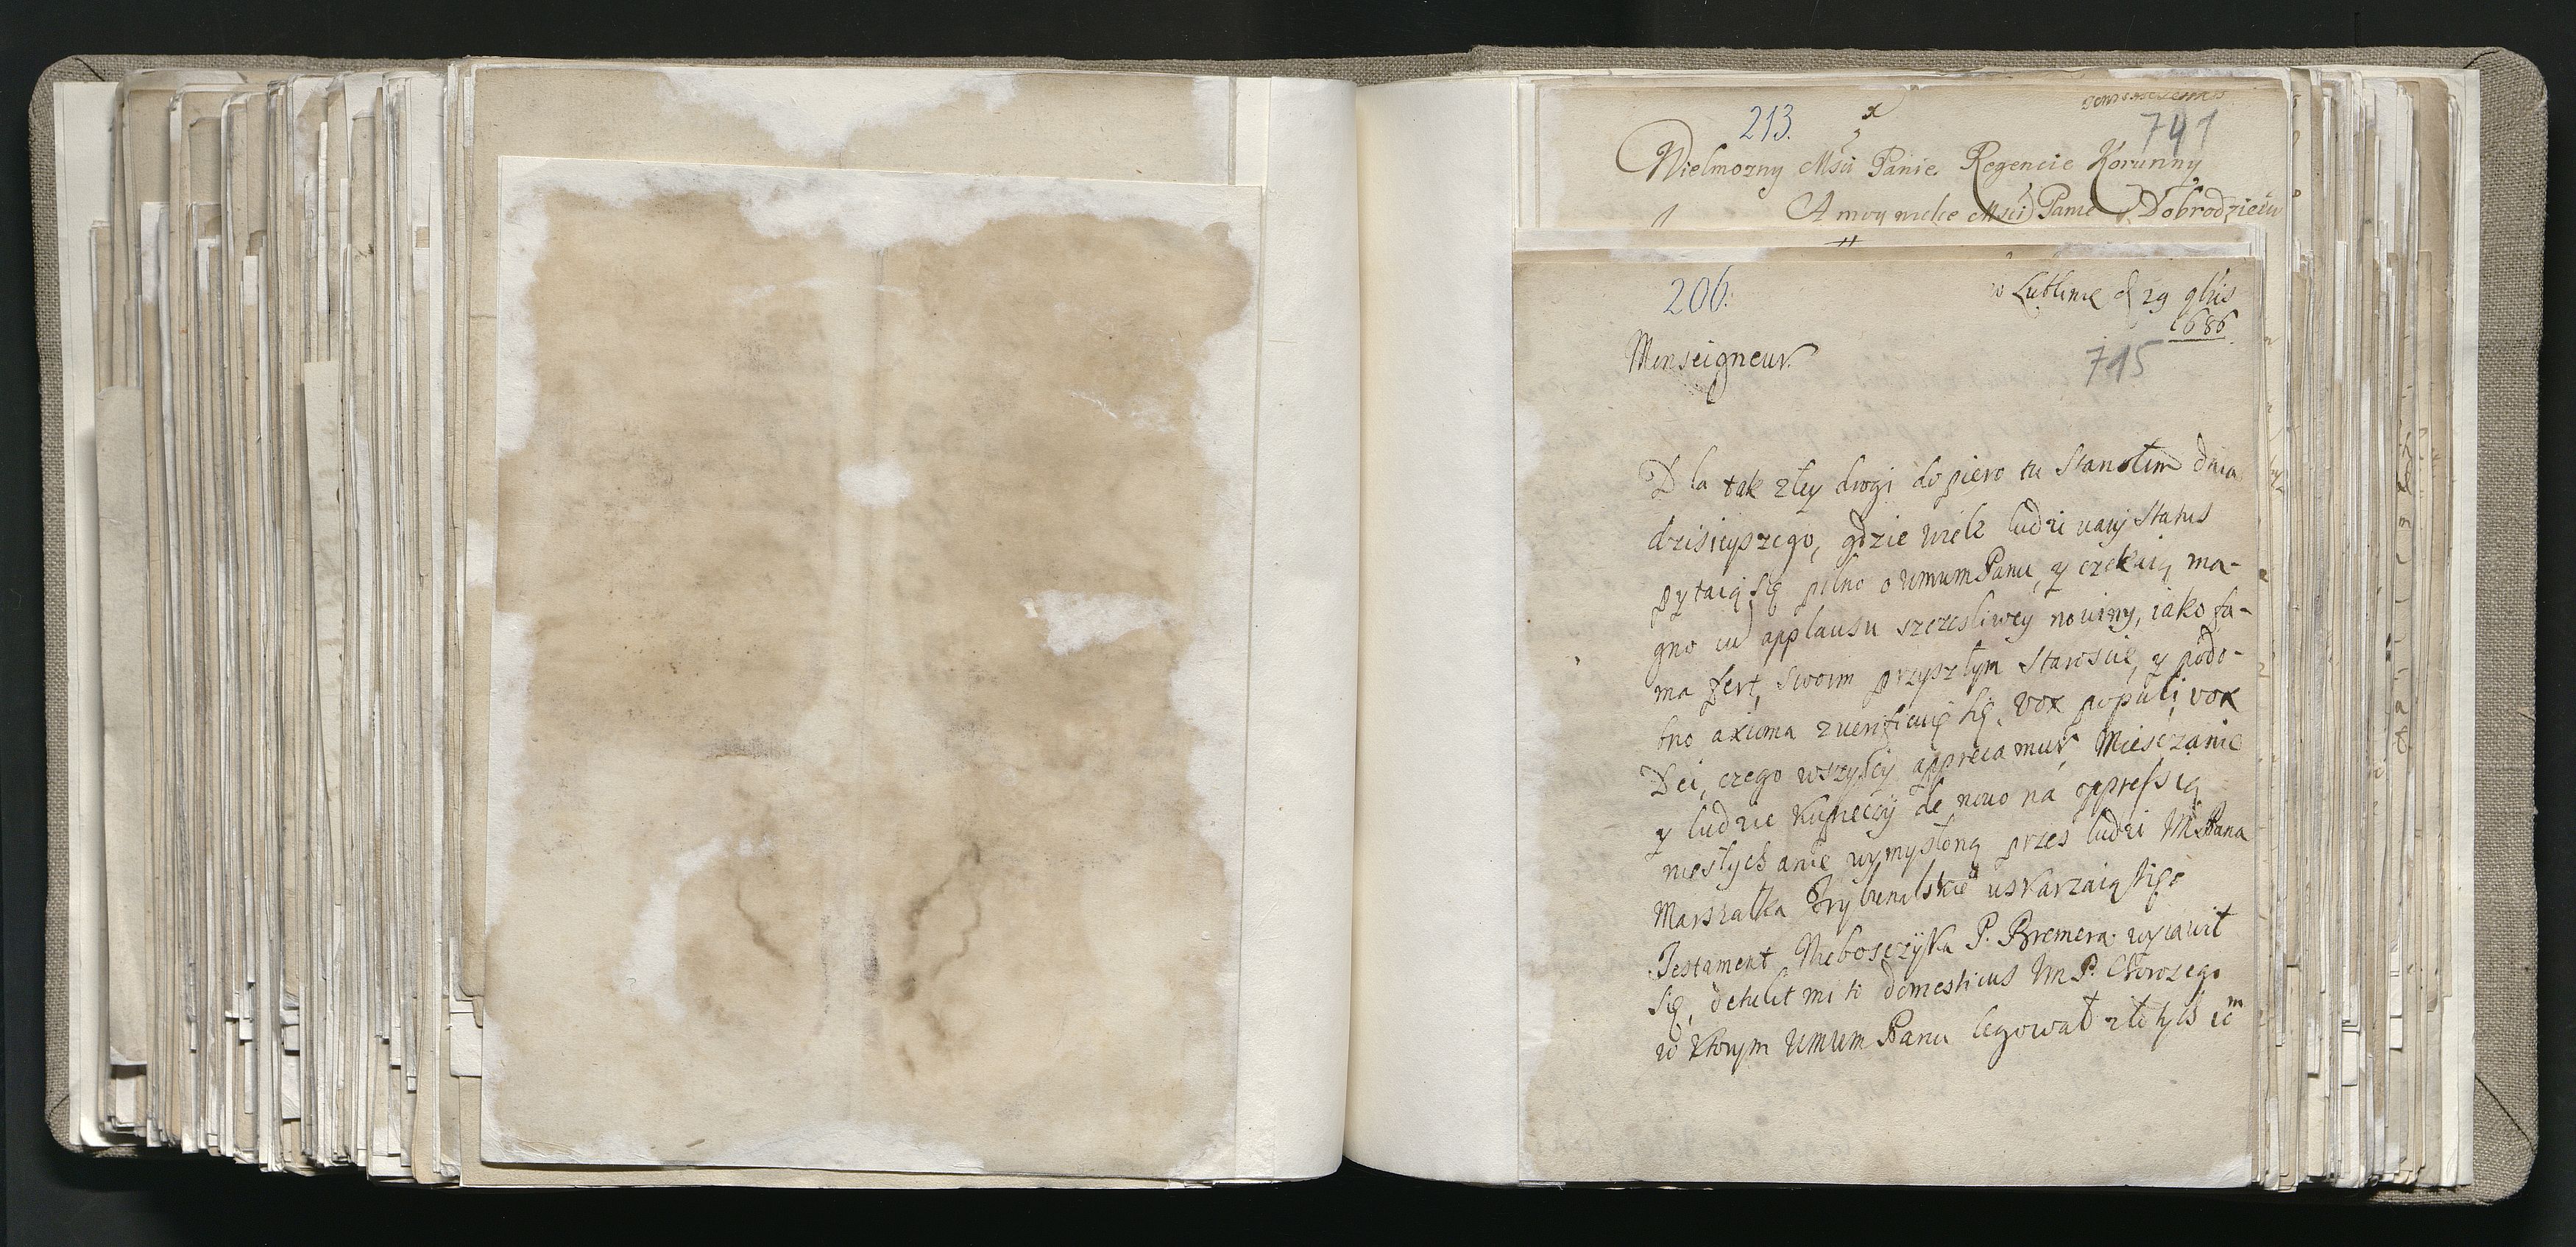 213.
741
Wielmozny Msci Panie Regencie Korunny
A moy wielce Msci Panie Dobrodzieiu
206.
w Lublinie d 29 9bris
1686
715
Monseigneur
Dla tak zley drogi do piero tu Stanołem dnia
dzisieyszego, gdzie wiele ludzi varij Status
pytaią się pilno o WmumPanu, y czekaią ma-
gno cu applausu szczesliwey nowiny, iako fa-
ma fert, swoim przyszłym Staroscie, y podo-
bno axioma zuerificuię się, vox populi, vox
Dei, czego wszyscy apprecamur, Miesczanie
y ludzie kupieccy de nouo na oppressią
niesłychanie wymysloną przes ludzi MPana
Marszałka Trybunalskie uskarzaią się
Testament Nieboszczyka P. Bremera wyiawił
się, detulit mi ti domesticus Im P.
w ktorym Wmum Panu legował złotych